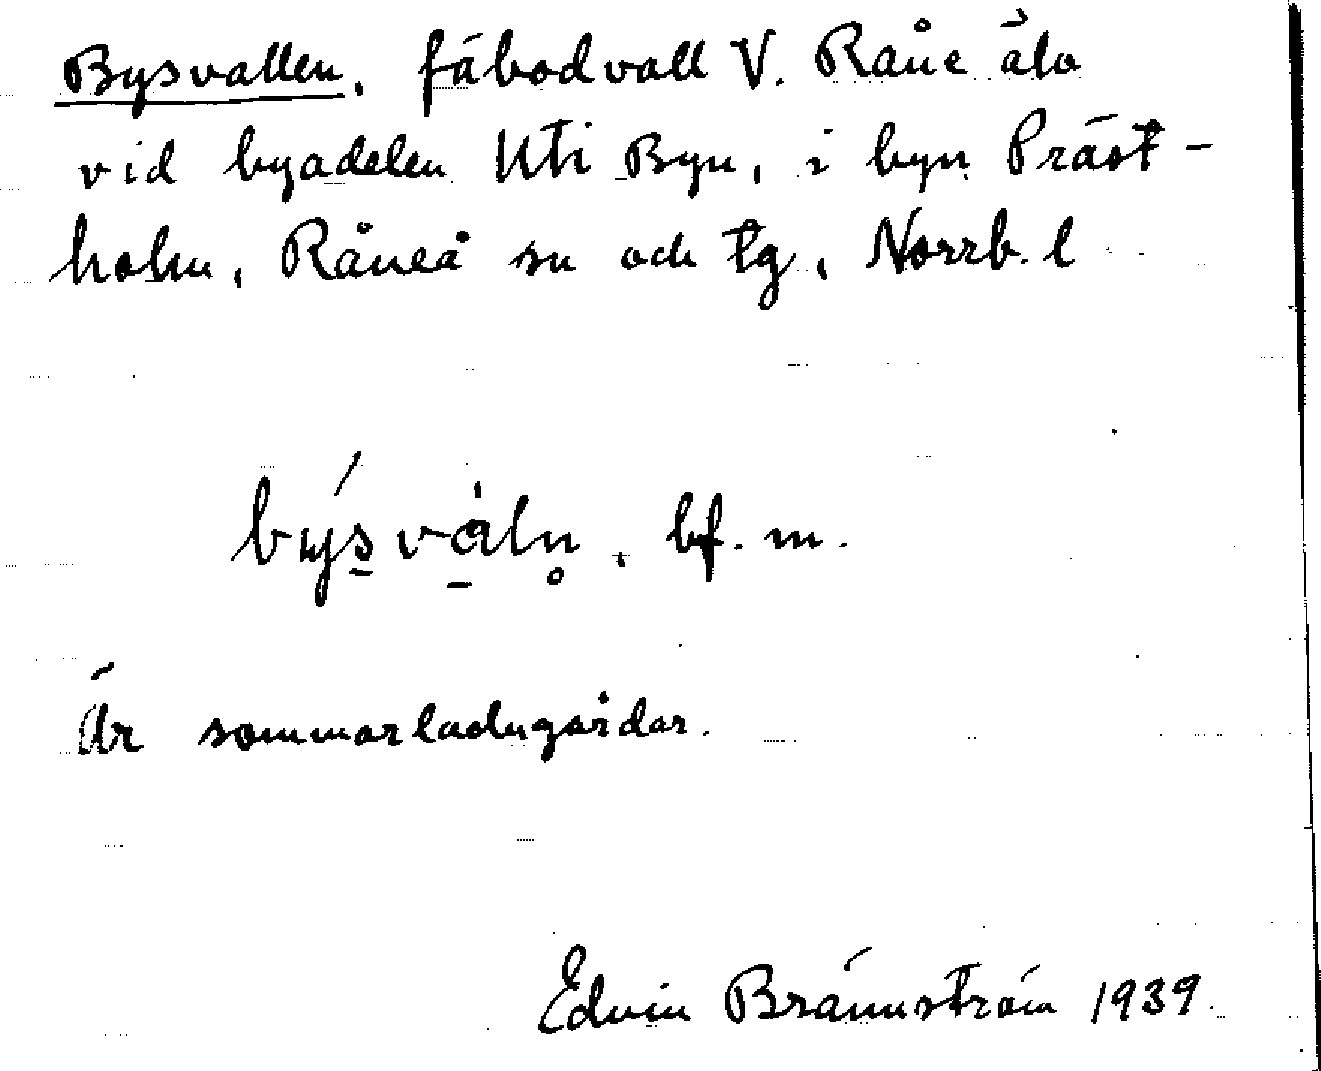 Bysvallen, fäbodvall V. Råne älv
vid byadelen Uti Byn, i byn Präst-
holm, Råneå sn och tg, Norrb. l
býsvȧln̥. bf. m.
Är sommarladugårdar.
Edvin Brännström 1939.